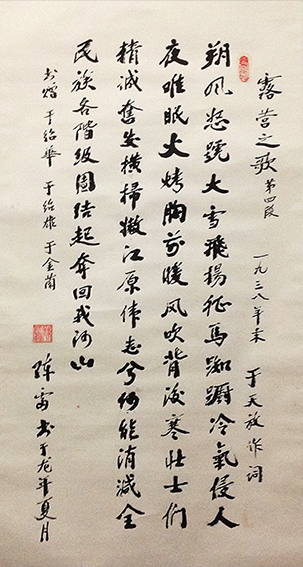 露营之歌 第四段 一九三八年末 于天放作词
朔风怒號大雪飛揚征馬踟躕冷氣侵人
夜难眠火烤胸前暖风吹背後寒壮士们
精诚奮发横掃嫩江原伟志兮何能消滅全
民族各階级團结起奪回我河山
书赠 于绍華 于绍雄 于金蘭
陈雷书于龙年夏月